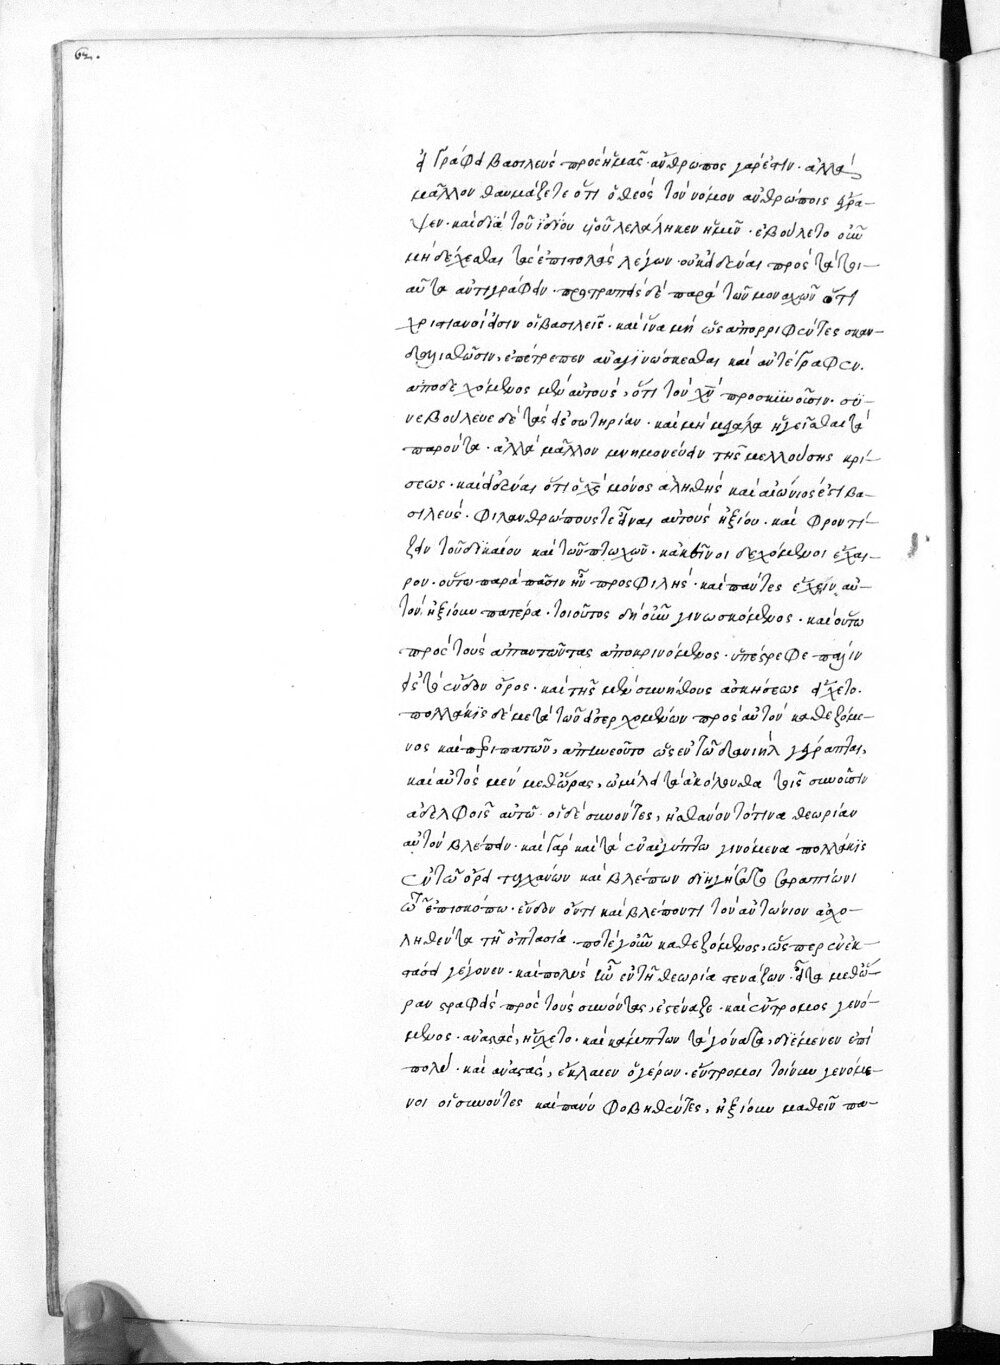 62.
εἰ γράφει βασιλεὺς πρὸς ἡμᾶς· ἄνθρωπος γάρ ἐστιν· ἀλλὰ
μᾶλλον θαυμάζετε ὅτι ὁ θεὸς τὸν νόμον ἀνθρώποις ἔγρα-
ψεν· καὶ διὰ τοῦ ἰδίου υἱοῦ λελάληκεν ἡμῖν· ἐβούλετο οὖν
μὴ δέχεσθαι τὰς ἐπιστολὰς λέγων· οὐκ εἰδέναι πρὸς τὰ τοι-
αῦτα ἀντιγράφειν· προτραπεὶς δὲ παρὰ τῶν μοναχῶν ὅτι
χριστιανοί εἰσιν οἱ βασιλεῖς· καὶ ἵνα μὴ ὡς ἀπορριφέντες σκαν-
δαλισθῶσιν, ἐπέτρεπεν ἀναγινώσκεσθαι καὶ ἀντέγραφεν.
ἀποδεχόμενος μὲν αὐτοὺς, ὅτι τὸν χν προσκυνοῦσιν· συ-
νεβούλευε δὲ τὰ εἰς σωτηρίαν· καὶ μὴ μεγάλα ἡγεῖσθαι τὰ
παρόντα· ἀλλὰ μᾶλλον μνημονεύειν τῆς μελλούσης κρί-
σεως· καὶ εἰδέναι ὅτι ὁ χς μόνος ἀληθὴς καὶ αἰώνιός ἐστι βα-
σιλεύς· φιλανθρώπους τε εἶναι αὐτοὺς ἠξίου· καὶ φροντί-
ζειν τοῦ δικαίου καὶ τῶν πτωχῶν· κἀκεῖνοι δεχόμενοι ἔχαι-
ρον· οὕτω παρὰ πᾶσιν ἦν προσφιλής· καὶ πάντες ἔχειν αὐ-
τὸν ἠξίουν πατέρα· τοιοῦτος δὴ οὖν γινωσκόμενος· καὶ οὕτω
πρὸς τοὺς ἀπαντῶντας ἀποκρινόμενος· ὑπέστρεφε πάλιν
εἰς τὸ ἔνδον ὄρος· καὶ τῆς μὲν συνήθους ἀσκήσεως εἴχετο.
πολλάκις δὲ μετὰ τῶν εἰσερχομένων πρὸς αὐτὸν καθεζόμε-
νος καὶ περιπατῶν, ἀπηνεοῦτο ὡς ἐν τῷ δανιὴλ γέγραπται,
καὶ αὐτὸς μὲν μεθ' ὥρας, ὡμίλει τὰ ἀκόλουθα τοῖς συνοῦσιν
ἀδελφοῖς αὐτῷ· οἱ δὲ συνόντες, ᾐσθάνοντό τινα θεωρίαν
αὐτὸν βλέπειν· καὶ γὰρ καὶ τὰ ἐν αἰγύπτῳ γινόμενα πολλάκις
ἐν τῷ ὄρει τυγχάνων καὶ βλέπων διηγήσατο σεραπίωνι
τῷ ἐπισκόπῳ· ἔνδον ὄντι καὶ βλέποντι τὸν ἀντώνιον ἀσχο-
ληθέντα τῇ ὀπτασίᾳ· ποτὲ γοῦν καθεζόμενος, ὥσπερ ἐν ἐκ-
στάσει γέγονεν· καὶ πολὺς ἦν ἐν τῇ θεωρίᾳ στενάζων· εἶτα μεθ' ὥ-
ραν στραφεὶς πρὸς τοὺς συνόντας, ἐστέναξε· καὶ ἔντρομος γενό-
μενος· ἀναστάς, ηὔχετο· καὶ κάμπτων τὰ γόνατα, διέμενεν ἐπὶ
πολύ· καὶ ἀναστάς, ἔκλαιεν ὁ γέρων· ἔντρομοι τοίνυν γενόμε-
νοι οἱ συνόντες καὶ πάνυ φοβηθέντες, ἠξίουν μαθεῖν πα-